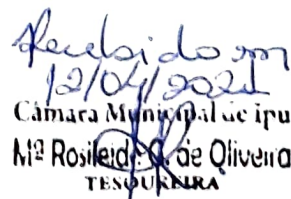 Recebido em
12/04/2021
Câmara Municipal de ipu
Mª Rosileide C. de Oliveira
TESOUREIRA